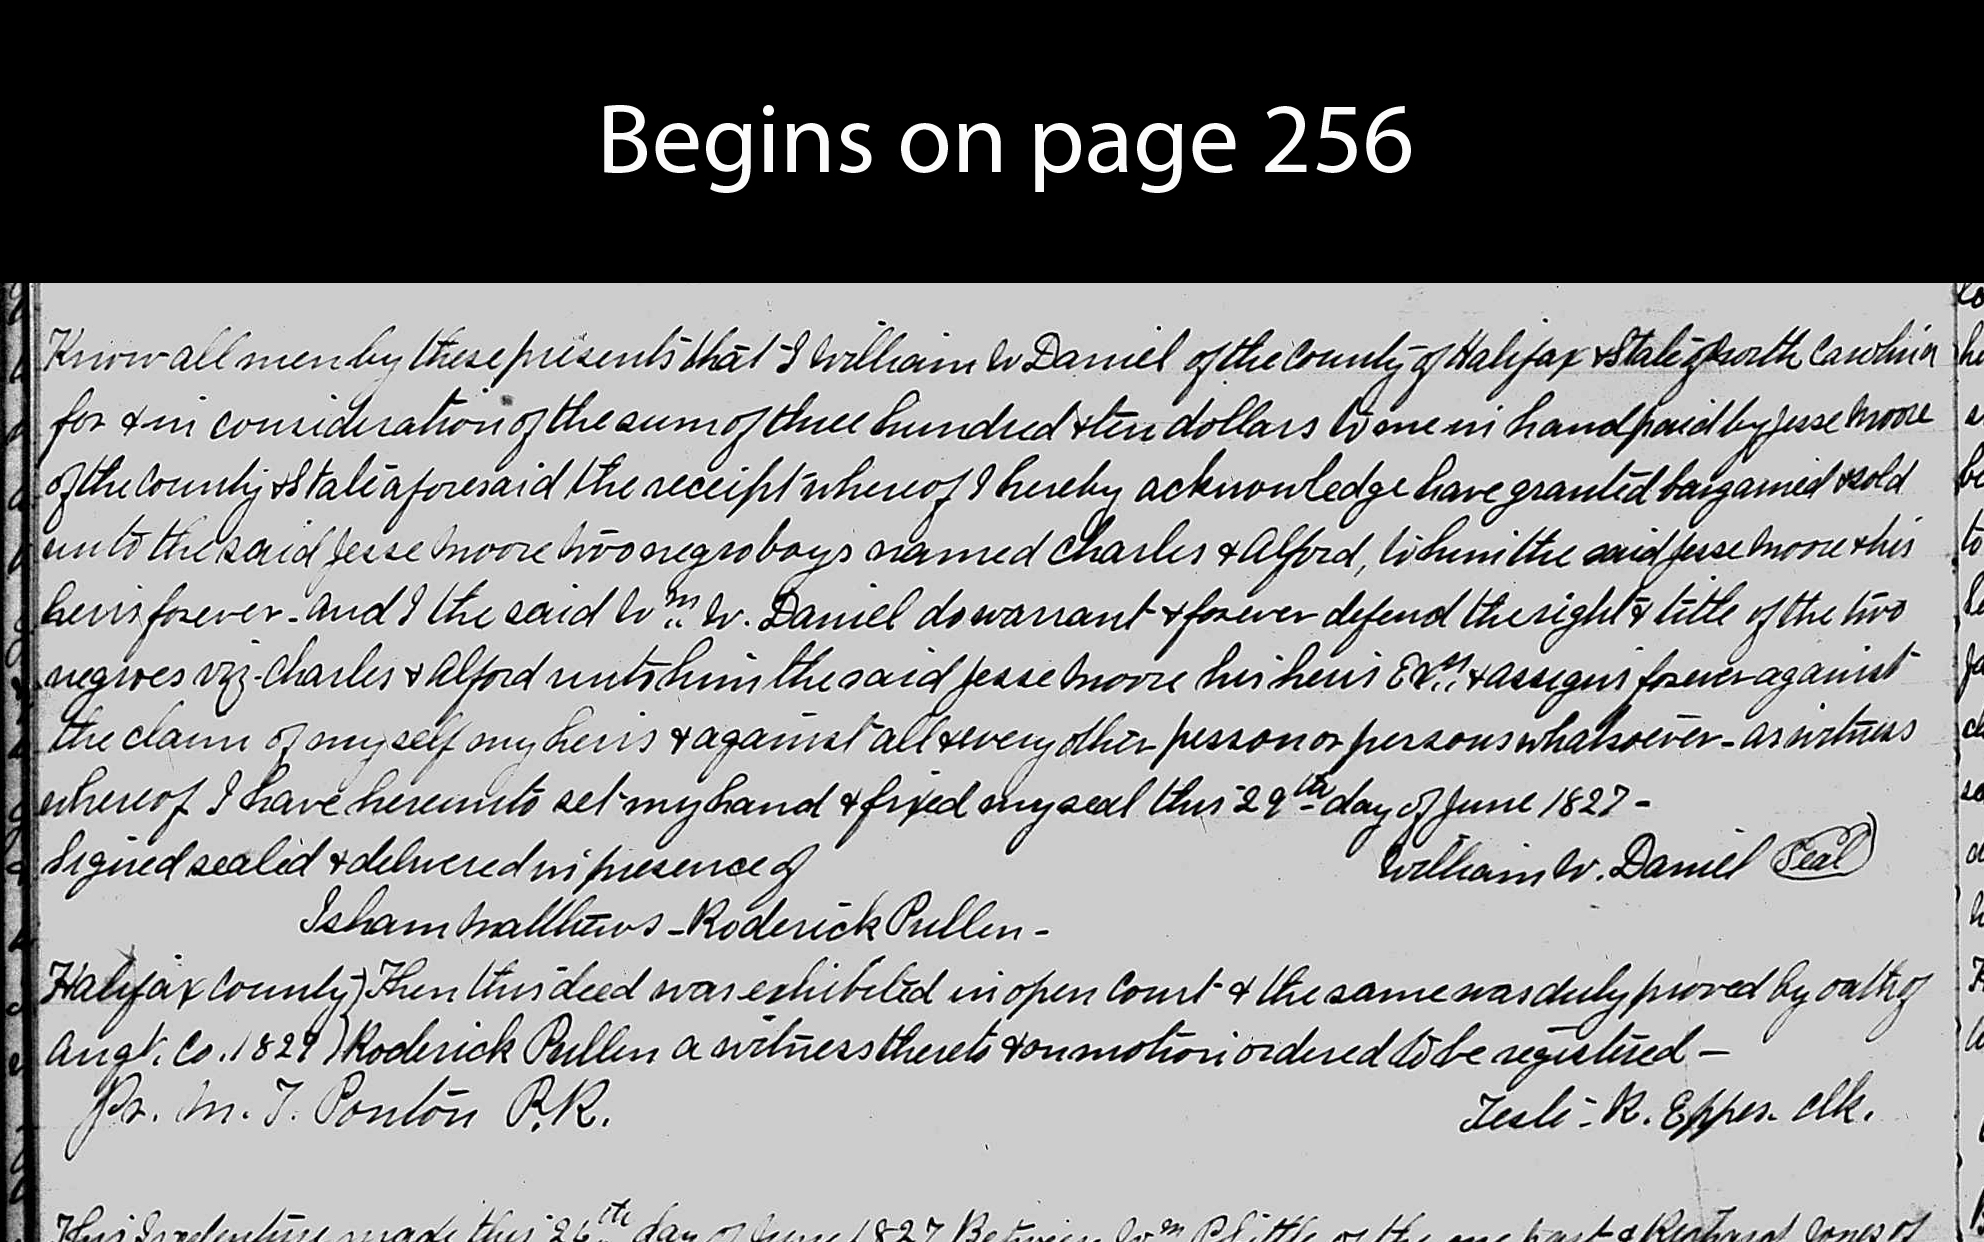 Begins on page 256
Know all men by these presents that I William W Daniel of the County of Halifax & State of North Carolina
for & in consideration of the sum of three hundred & ten dollars to me in hand paid by Jesse Moore
of the County & State aforesaid the receipt whereof I hereby acknowledge have granted bargained & sold
unto the said Jesse Moore two negro boys named Charles & Alford, to him the said Jesse Moore & his
heirs forever - And I the said Wm. W. Daniel do warrant & forever defend the right & title of the two
negroes viz - Charles & Alford unto him the said Jesse Moore his heirs Exrs. & assigns forever against
the claim of my self my heirs & against all & every other person or persons whatsoever - as witness
whereof I have hereunto set my hand & fixed my seal this 29th day of June 1827 -
Signed sealed & delivered in presence of William W. Daniel (Seal)
Isham Matthews - Roderick Pullen -
Halifax County } Then this deed was exhibited in open Court & the same was duly proved by oath of
Augt. Co. 1829 } Roderick Pullen a witness thereto & on motion ordered to be registered -
Pr. M. T. Ponton P.R. Teste - R. Eppes. Clk.
This Indenture made this 26th day of June 1827 Between Wm P Little of the one part & Richard Jones of